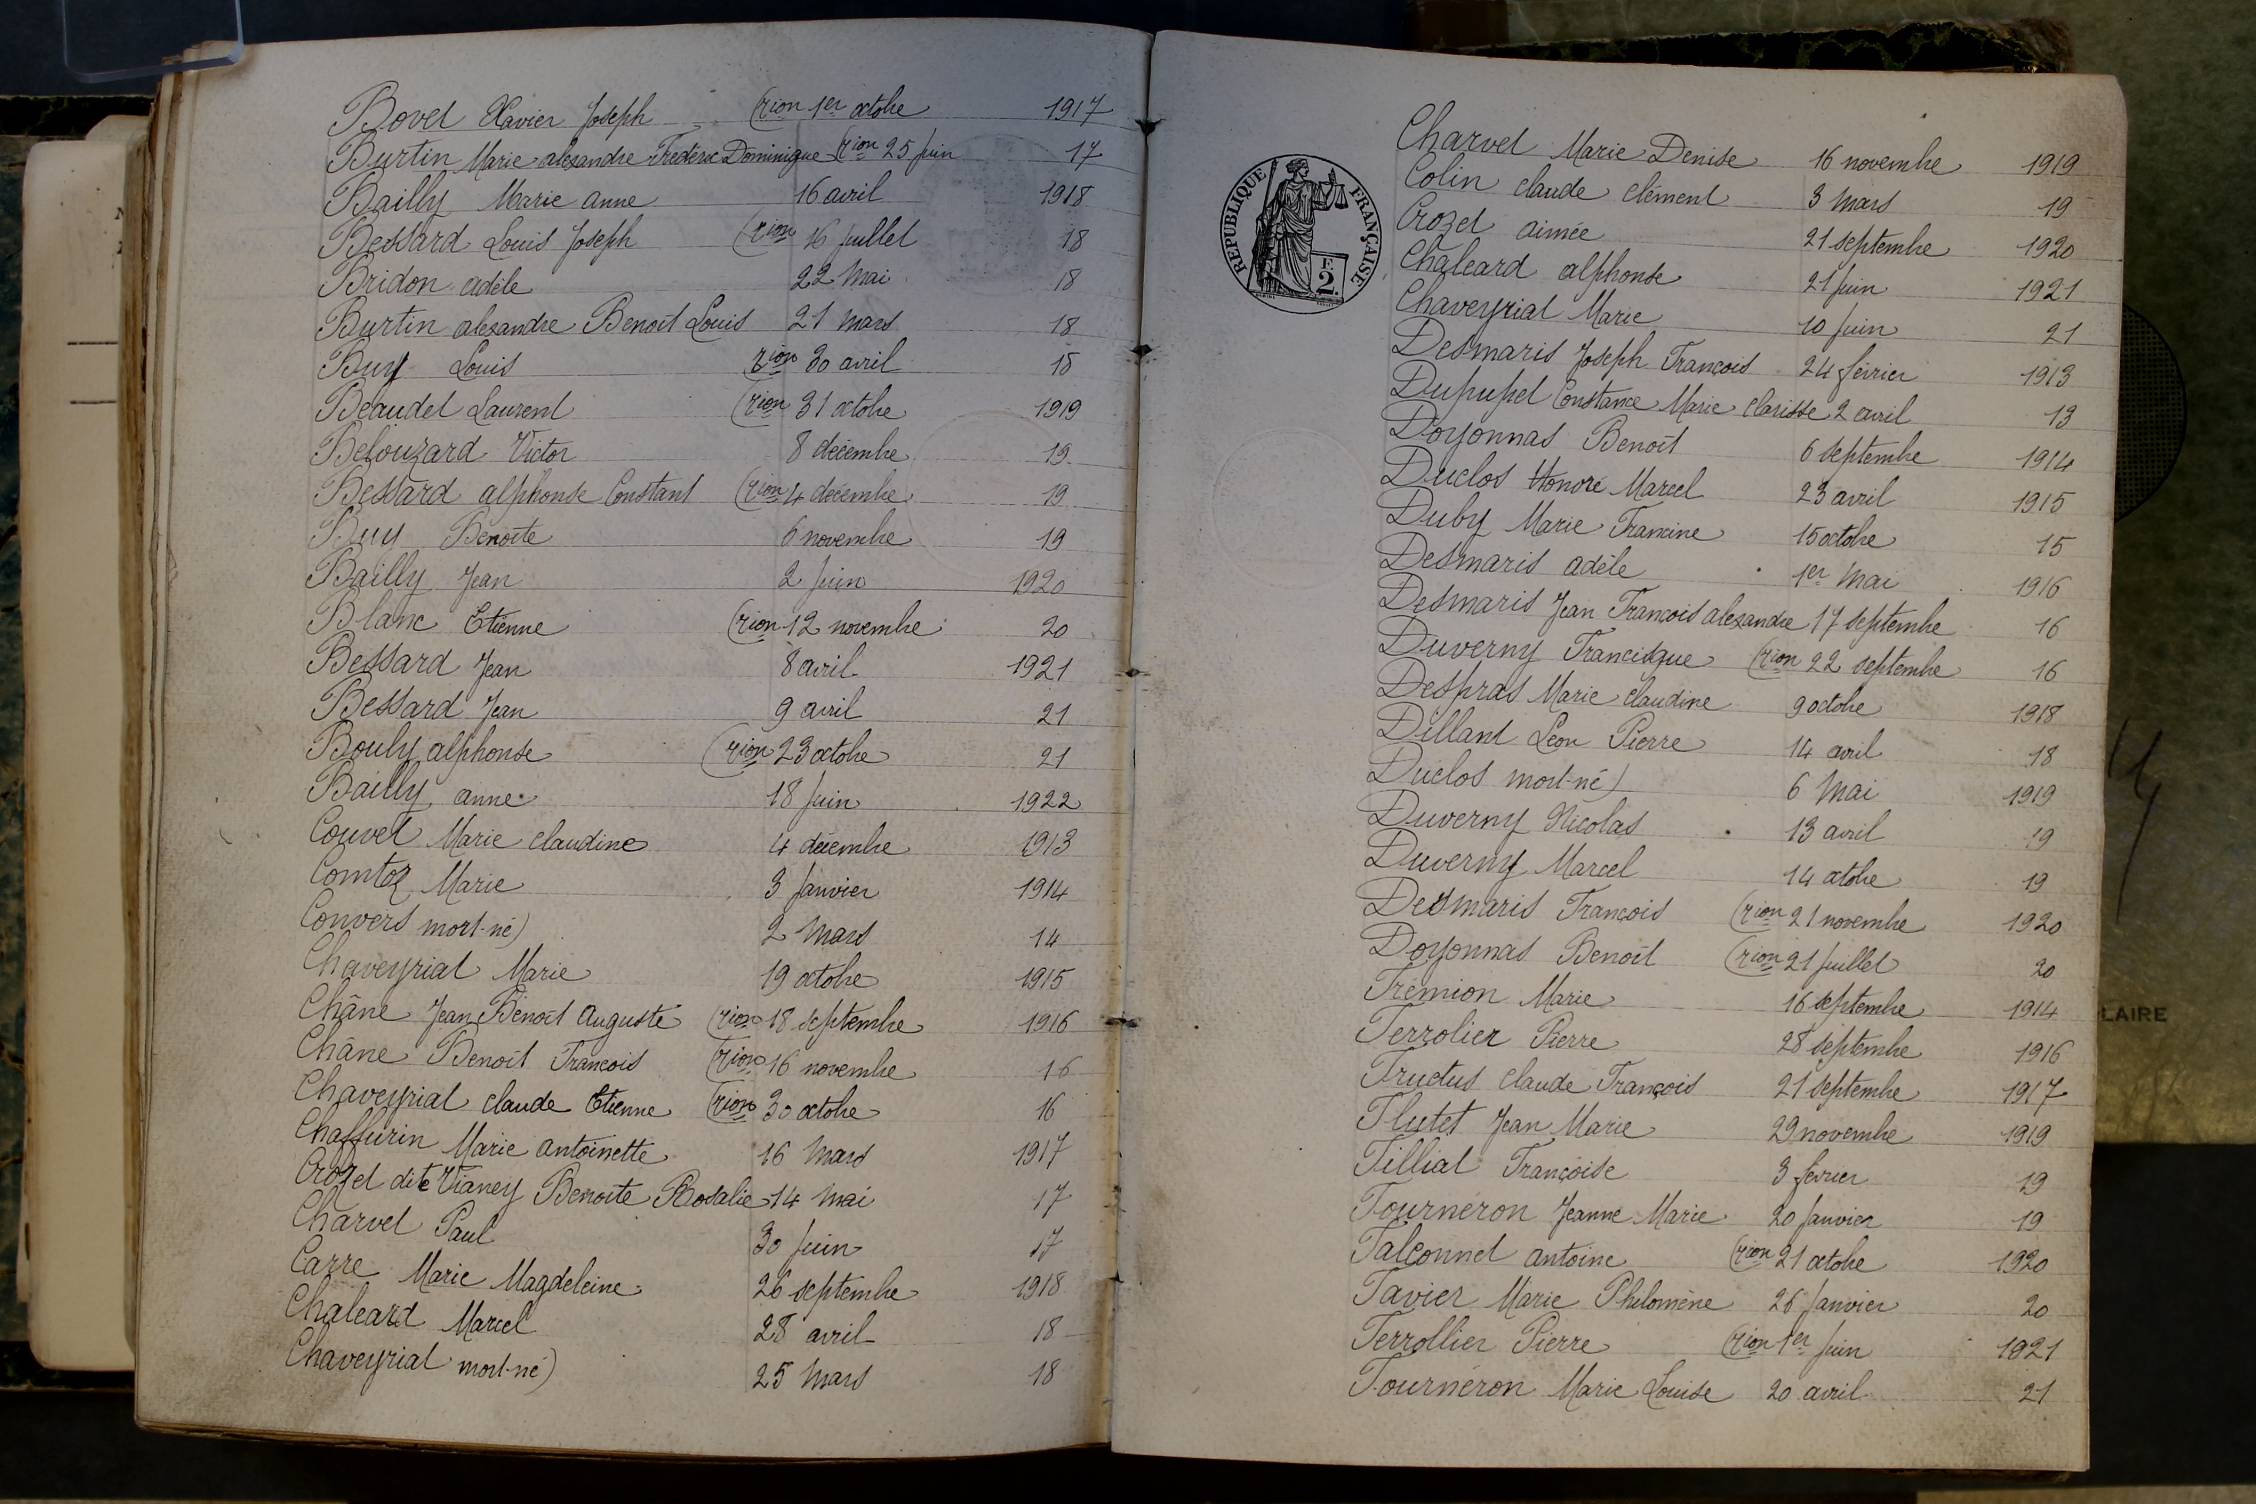 Bovet Xavier Joseph (rion 1er octobre 1917
Burtin Marie alexandre Frédéric Dominique (rion 25 juin 17
Bailly Marie anne 16 avril 1918
Bessard Louis Joseph (rion 16 juillet 18
Bridon adèle 22 Mai 18
Burtin alexandre Benoît Louis 21 Mars 18
Buy Louis rion 30 avril 18
Beaudet Laurent (rion 31 octobre 1919
Belouzard Victor 8 décembre 19
Bessard alphonse Constant (rion 4 décembre 19
Buy Benoîte 6 novembre 19
Bailly Jean 2 Juin 1920
Blanc Etienne (rion 12 novembre 20
Bessard Jean 8 avril 1921
Bessard Jean 9 avril 21
Bouly alphonse (rion 23 octobre 21
Bailly anne 18 Juin 1922
Couvet Marie claudine 4 décembre 1913
Comtoz Marie 3 Janvier 1914
Convers mort-né) 2 Mars 14
Chaveyriat Marie 19 octobre 1915
Châne Jean Benoît Auguste (rion 18 septembre 1916
Châne Benoît François (rion 16 novembre 16
Chaveyriat claude Etienne (rion 30 octobre 16
Chaffurin Marie antoinette 16 Mars 1917
Crozet dite Vianey Benoite Rosalie 14 Mai 17
Charvet Paul 30 Juin 17
Carre Marie Magdeleine 26 septembre 1918
Chaleard Marcel 28 avril 18
Chaveyriat mort-né) 25 Mars 18
REPUBLIQUE FRANÇAISE
F.
2.
Charvet Marie Denise 16 novembre 1919
Colin claude clément 3 Mars 19
Crozet aimée 21 septembre 1920
Chaleard alphonse 21 Juin 1921
Chaveyriat Marie 10 Juin 21
Desmaris Joseph François 24 février 1913
Dupupet Constance Marie clarisse 2 avril 13
Doyonnas Benoît 6 septembre 1914
Duclos Honoré Marcel 23 avril 1915
Duby Marie Francine 15 octobre 15
Desmaris adèle 1er Mai 1916
Desmaris Jean François alexandre 17 septembre 16
Duverny Francisque (rion 22 septembre 16
Despras Marie claudine 9 octobre 1918
Dillant Léon Pierre 14 avril 18
Duclos mort-né) 6 Mai 1919
Duverny Nicolas 13 avril 19
Duverny Marcel 14 octobre 19
Desmaris François (rion 21 novembre 1920
Doyonnas Benoît (rion 21 juillet 20
Fremion Marie 16 septembre 1914
Ferrolier Pierre 28 septembre 1916
Fructus claude François 21 septembre 1917
Flutet Jean Marie 29 novembre 1919
Filliat Françoise 3 février 19
Fourneron Jeanne Marie 20 Janvier 19
Falconnet antoine (rion 21 octobre 1920
Favier Marie Philomène 26 Janvier 20
Ferrollier Pierre (rion 1er Juin 1921
Fourneron Marie Louise 20 avril 21
LAIRE